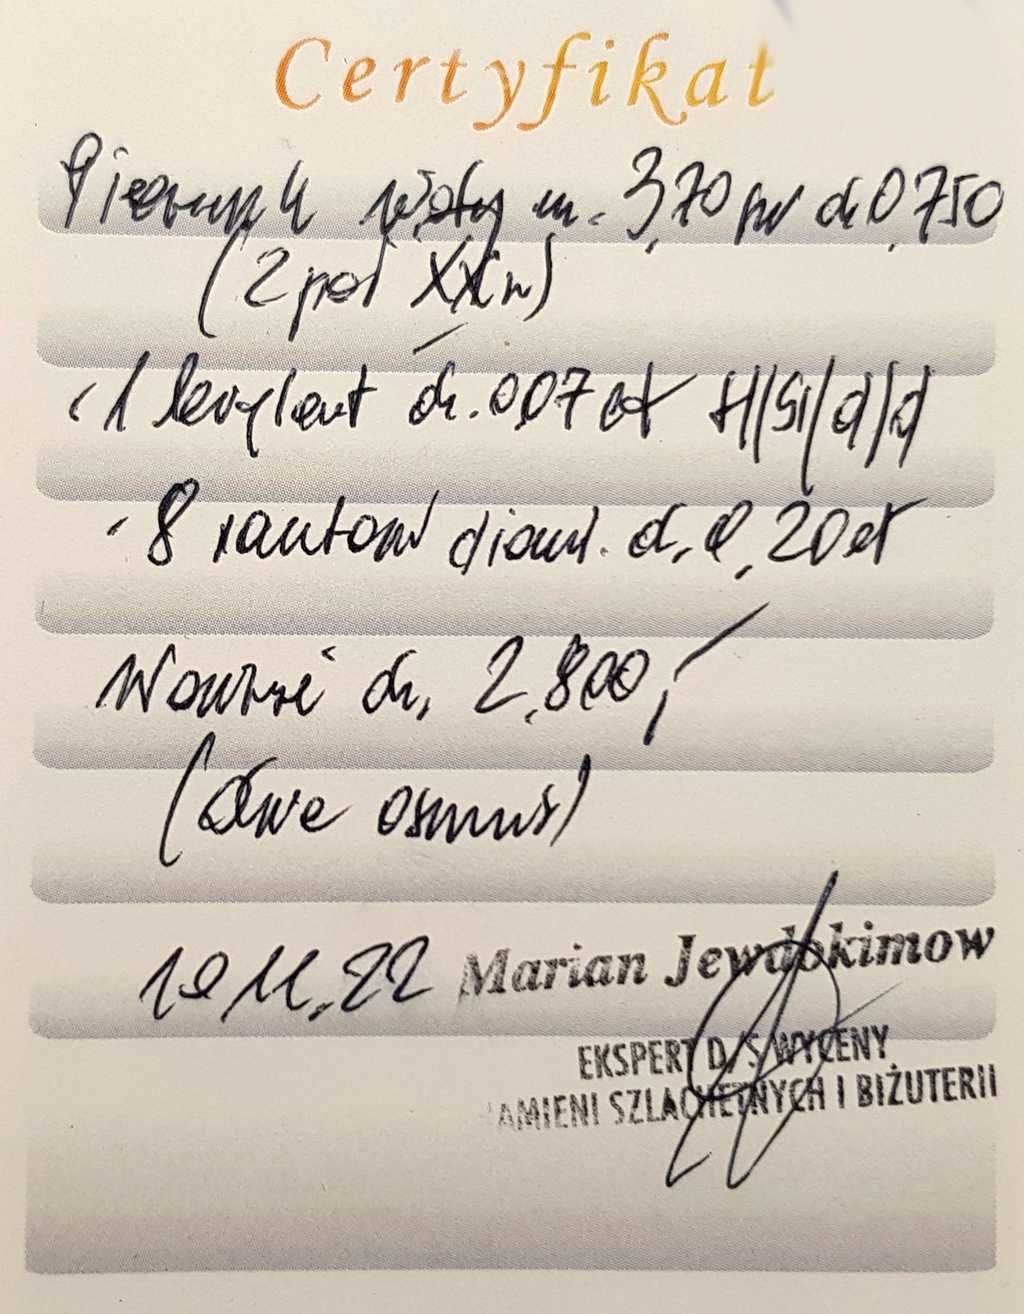 Certyfikat
Pierścionek złoty m. 3,70 pr 0,750
(2 poł XX w)
- 1 brylant ok. 0,07 ct H/Si/d/d
- 8 rautów diam. ok. 0,20 ct
Wartość ok. 2.800,-
(dwa osiemset)
19.11.22 Marian Jewdokimow
EKSPERT D/S WYCENY
KAMIENI SZLACHETNYCH I BIŻUTERII